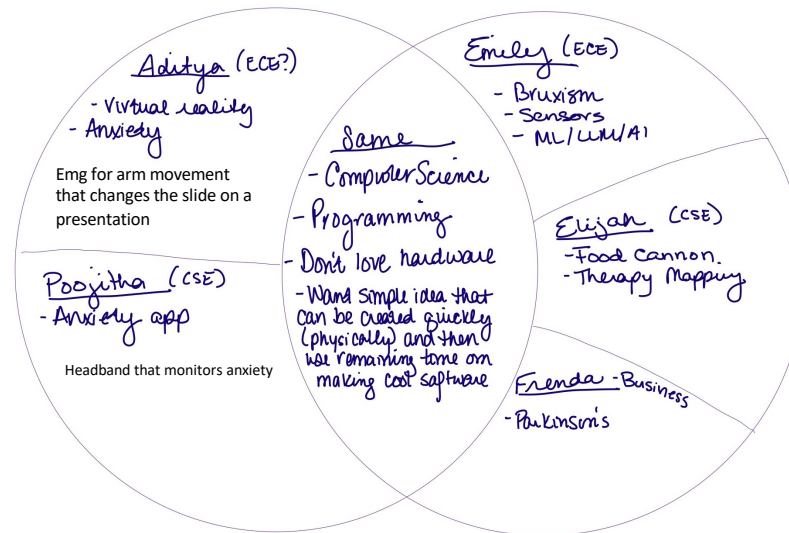 Aditya (ECE?)
- Virtual reality
- Anxiety
Emg for arm movement
that changes the slide on a
presentation
Poojitha (CSE)
- Anxiety app
Headband that monitors anxiety
Same
- Computer Science
- Programming
- Don't love hardware
- Want simple idea that
can be created quickly
(physically) and then
use remaining time on
making cool software
Emily (ECE)
- Bruxism
- Sensors
- ML/LLM/AI
Elijah (CSE)
- Food Cannon.
- Therapy Mapping
Frenda - Business
- Parkinson's